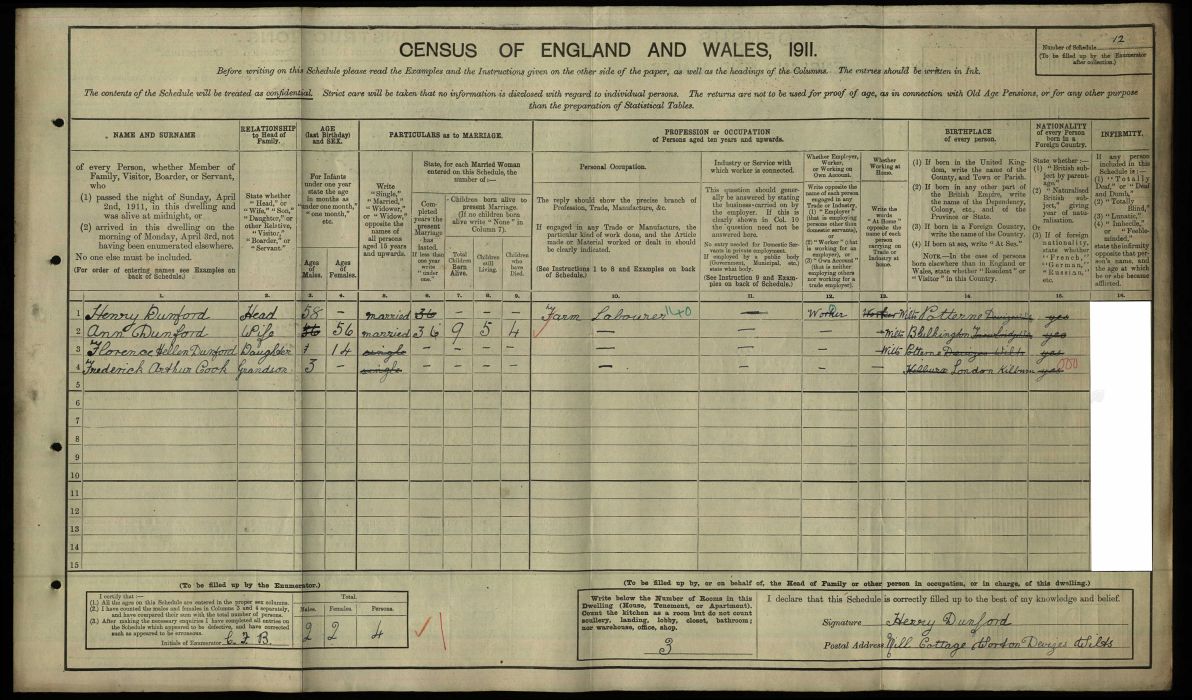 CENSUS OF ENGLAND AND WALES, 1911.
Number of Schedule 12
(To be filled up by the Enumerator
after collection.)
Before writing on this Schedule please read the Examples and the Instructions given on the other side of the paper, as well as the headings of the Columns. The entries should be written in Ink.
The contents of the Schedule will be treated as confidential. Strict care will be taken that no information is disclosed with regard to individual persons. The returns are not to be used for proof of age, as in connection with Old Age Pensions, or for any other purpose
than the preparation of Statistical Tables.
NAME AND SURNAME
of every Person, whether Member of
Family, Visitor, Boarder, or Servant,
who
(1) passed the night of Sunday, April
2nd, 1911, in this dwelling and
was alive at midnight, or
(2) arrived in this dwelling on the
morning of Monday, April 3rd, not
having been enumerated elsewhere.
No one else must be included.
(For order of entering names see Examples on
back of Schedule.)
RELATIONSHIP
to Head of
Family.
State whether
"Head," or
"Wife," "Son,"
"Daughter," or
other Relative,
"Visitor,"
"Boarder," or
"Servant."
AGE
(last Birthday)
and SEX.
For Infants
under one year
state the age
in months as
"under one month,"
"one month,"
etc.
Ages
of
Males.
Ages
of
Females.
PARTICULARS as to MARRIAGE.
Write
"Single,"
"Married,"
"Widower,"
or "Widow,"
opposite the
names of
all persons
aged 15 years
and upwards.
State, for each Married Woman
entered on this Schedule, the
number of:—
Completed
years the
present
Marriage
has
lasted.
If less than
one year
write
"under
one."
Children born alive to
present Marriage.
(If no children born
alive write "None" in
Column 7).
Total
Children
Born
Alive.
Children
still
Living.
Children
who
have
Died.
PROFESSION or OCCUPATION
of Persons aged ten years and upwards.
Personal Occupation.
The reply should show the precise branch of
Profession, Trade, Manufacture, &c.
If engaged in any Trade or Manufacture, the
particular kind of work done, and the Article
made or Material worked or dealt in should
be clearly indicated.
(See Instructions 1 to 8 and Examples on back
of Schedule.)
Industry or Service with
which worker is connected.
This question should gener-
ally be answered by stating
the business carried on by
the employer. If this is
clearly shown in Col. 10
the question need not be
answered here.
No entry needed for Domestic Ser-
vants in private employment.
If employed by a public body
(Government, Municipal, etc.)
state what body.
(See Instruction 9 and Exam-
ples on back of Schedule.)
Whether Employer,
Worker,
or Working on
Own Account.
Write opposite the
name of each person
engaged in any
Trade or Industry,
(1) "Employer"
(that is employing
persons other than
domestic servants),
or
(2) "Worker" (that
is working for an
employer), or
(3) "Own Account"
(that is neither
employing others
nor working for a
trade employer).
Whether
Working at
Home.
Write the
words
"At Home"
opposite the
name of each
person
carrying on
Trade or
Industry at
home.
BIRTHPLACE
of every person.
(1) If born in the United King-
dom, write the name of the
County, and Town or Parish.
(2) If born in any other part of
the British Empire, write
the name of the Dependency,
Colony, etc., and of the
Province or State.
(3) If born in a Foreign Country,
write the name of the Country.
(4) If born at sea, write "At Sea."
NOTE.—In the case of persons
born elsewhere than in England or
Wales, state whether "Resident" or
"Visitor" in this Country.
NATIONALITY
of every Person
born in a
Foreign Country.
State whether:—
(1) "British sub-
ject by parent-
age,"
(2) "Naturalised
British sub-
ject," giving
year of natu-
ralisation.
Or
(3) If of foreign
nationality,
state whether
"French,"
"German,"
"Russian,"
etc.
INFIRMITY.
If any person
included in this
Schedule is:—
(1) "Totally
Deaf," or "Deaf
and Dumb,"
(2) "Totally
Blind,"
(3) "Lunatic,"
(4) "Imbecile,"
or "Feeble-
minded,"
state the infirmity
opposite that per-
son's name, and
the age at which
he or she became
afflicted.
1. 2. 3. 4. 5. 6. 7. 8. 9. 10. 11. 12. 13. 14. 15. 16.
1 Henry Dunford Head 58 — married 36 — — — Farm Labourer 140 — Worker Worker Wilts Potterne Devizes yes
2 Ann Dunford Wife 56 56 married 36 9 5 4 — — — — Wilts yes
3 Florence Hellen Dunford Daughter 14 single — — — — — — — — Wilts Potterne Devizes Wilts yes
4 Frederick Arthur Cook Grandson 3 — single — — — — — — — — Kilburn London Kilburn yes
5
6
7
8
9
10
11
12
13
14
15
(To be filled up by the Enumerator.)
I certify that:—
(1.) All the ages on this Schedule are entered in the proper sex columns.
(2.) I have counted the males and females in Columns 3 and 4 separately,
and have compared their sum with the total number of persons.
(3.) After making the necessary enquiries I have completed all entries on
the Schedule which appeared to be defective, and have corrected
such as appeared to be erroneous.
Initials of Enumerator
Total.
Males. Females. Persons.
2 2 4
(To be filled up by, or on behalf of, the Head of Family or other person in occupation, or in charge, of this dwelling.)
Write below the Number of Rooms in this
Dwelling (House, Tenement, or Apartment).
Count the kitchen as a room but do not count
scullery, landing, lobby, closet, bathroom;
nor warehouse, office, shop.
3
I declare that this Schedule is correctly filled up to the best of my knowledge and belief.
Signature Henry Dunford
Postal Address Mill Cottage Worton Devizes Wilts